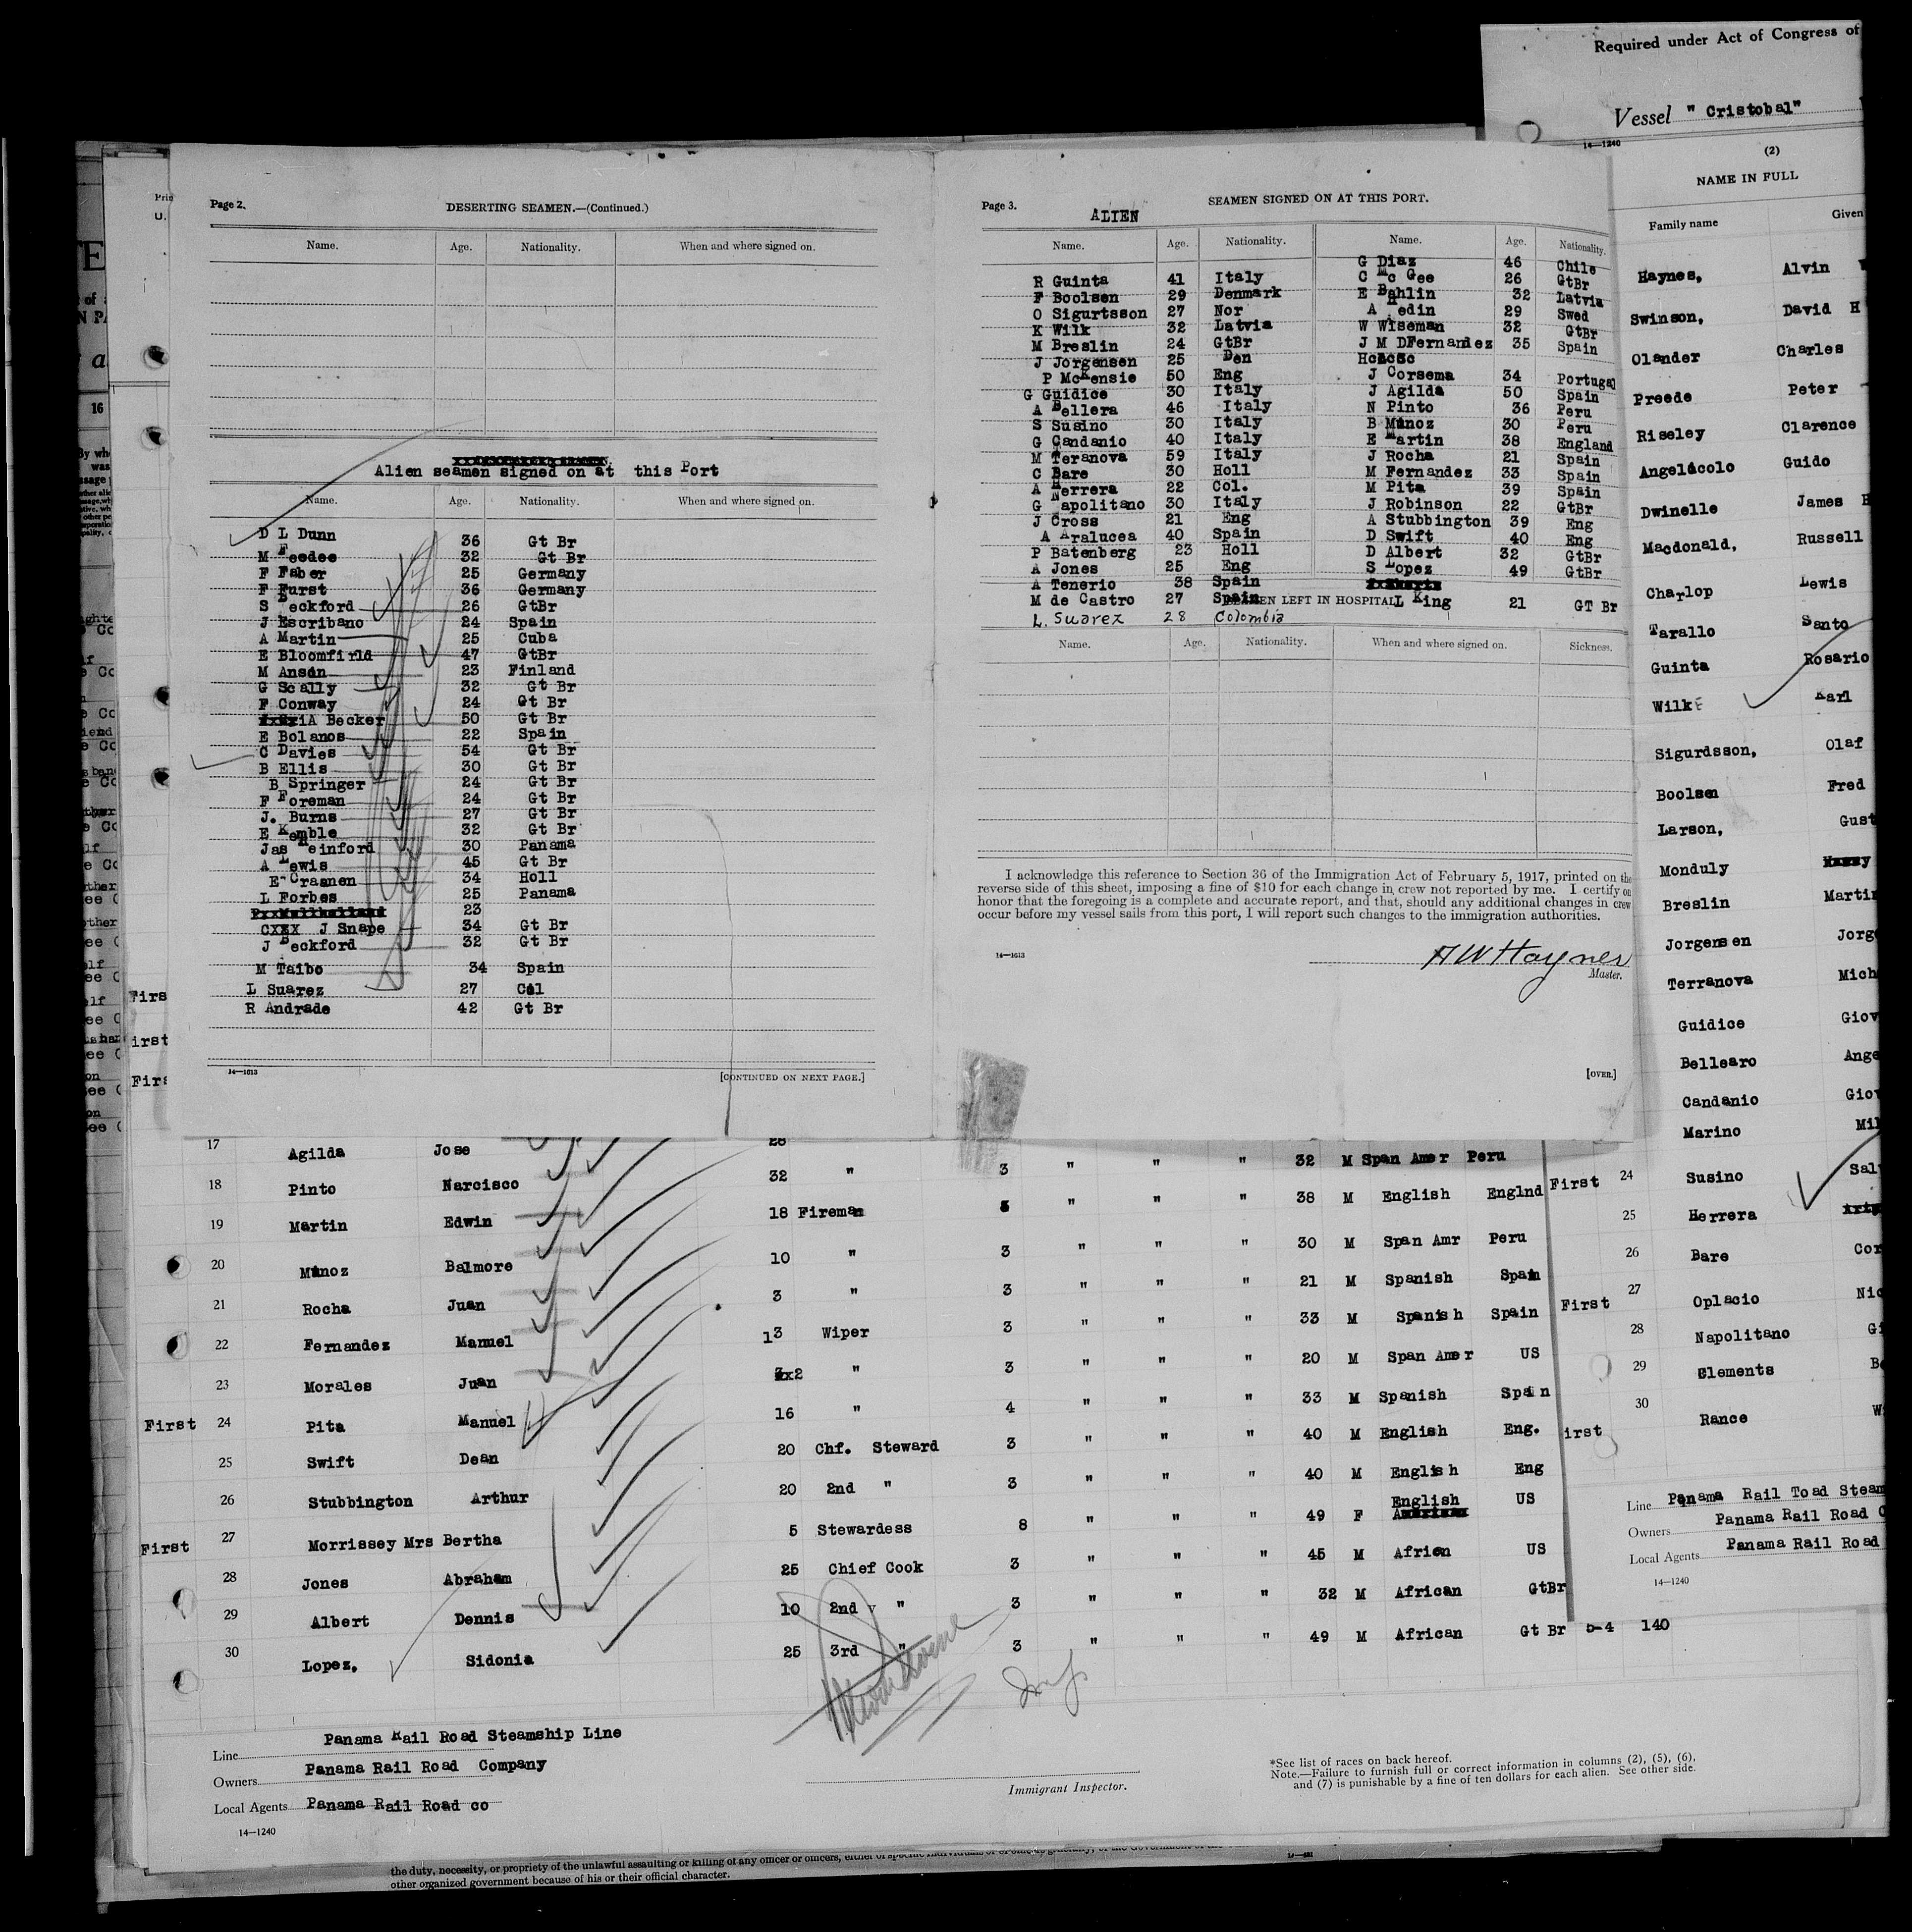 Required under Act of Congress of
Vessel " Cristobal"
14—1240
(2)
NAME IN FULL
Family name Given
Haynes, Alvin
Swinson, David H
Olander Charles
Preede Peter
Riseley Clarence
Angelocolo Guido
Dwinelle James H
Macdonald, Russell
Charlop Lewis
Tarallo Santo
Guinta Rosario
Wilk Karl
Sigurdsson, Olaf
Boolsen Fred
Larson, Gust
Monduly
Breslin Martin
Jorgensen Jorg
Terranova Mich
Guidice Giov
Bellearo Ange
Candanio Giov
Marino Mil
First 24 Susino Sal
25 Herrera
26 Bare Cor
First 27 Oplacio Nic
28 Napolitano Gi
29 Clements Be
irst 30 Rance Wi
Line Panama Rail Toad Steam
Owners Panama Rail Road C
Local Agents Panama Rail Road
14—1240
Page 2.
DESERTING SEAMEN.—(Continued.)
Name. Age. Nationality. When and where signed on.
Alien seamen signed on at this Port
Name. Age. Nationality. When and where signed on.
D L Dunn 36 Gt Br
M Feedee 32 Gt Br
F Faber 25 Germany
F Furst 36 Germany
S Beckford 26 GtBr
J Escribano 24 Spain
A Martin 25 Cuba
E Bloomfirld 47 GtBr
M Anson 23 Finland
G Scally 32 Gt Br
F Conway 24 Gt Br
A Becker 50 Gt Br
E Bolanos 22 Spain
C Davies 54 Gt Br
B Ellis 30 Gt Br
B Springer 24 Gt Br
F Foreman 24 Gt Br
J. Burns 27 Gt Br
E Kemble 32 Gt Br
Jas Heinford 30 Panama
A Lewis 45 Gt Br
E Craanen 34 Holl
L Forbes 25 Panama
23
CXXX J Snape 34 Gt Br
J Beckford 32 Gt Br
M Taibo 34 Spain
L Suarez 27 Col
R Andrade 42 Gt Br
14—1613
[CONTINUED ON NEXT PAGE.]
Page 3.
SEAMEN SIGNED ON AT THIS PORT.
ALIEN
Name. Age. Nationality. Name. Age. Nationality.
G Diaz 46 Chile
R Guinta 41 Italy C Mc Gee 26 GtBr
F Boolsen 29 Denmark E Bahlin 32 Latvia
O Sigurtsson 27 Nor A Hedin 29 Swed
K Wilk 32 Latvia W Wiseman 32 GtBr
M Breslin 24 GtBr J M DFernandez 35 Spain
J Jorgensen 25 Den
P McKensie 50 Eng J Corsema 34 Portugal
G Guidice 30 Italy J Agilda 50 Spain
A Bellera 46 Italy N Pinto 36 Peru
S Susino 30 Italy B Munoz 30 Peru
G Candanio 40 Italy E Martin 38 England
M Teranova 59 Italy J Rocha 21 Spain
C Bare 30 Holl M Fernandez 33 Spain
A Herrera 22 Col. M Pita 39 Spain
G Napolitano 30 Italy J Robinson 22 GtBr
J Cross 21 Eng A Stubbington 39 Eng
A Aralucea 40 Spain D Swift 40 Eng
P Batenberg 23 Holl D Albert 32 GtBr
A Jones 25 Eng S Lopez 49 GtBr
A Tenerio 38 Spain
M de Castro 27 Spain L King 21 GT Br
SEAMEN LEFT IN HOSPITAL
L. Suarez 28 Colombia
Name. Age. Nationality. When and where signed on. Sickness.
I acknowledge this reference to Section 36 of the Immigration Act of February 5, 1917, printed on the
reverse side of this sheet, imposing a fine of $10 for each change in crew not reported by me. I certify on
honor that the foregoing is a complete and accurate report, and that, should any additional changes in crew
occur before my vessel sails from this port, I will report such changes to the immigration authorities.
14—1613
Master.
[OVER.]
17 Agilda Jose
18 Pinto Narcisco 32 " 3 " " " 32 M Span Amer Peru
19 Martin Edwin 18 Fireman " " " 38 M English Englnd
20 Munoz Balmore 10 " 3 " " " 30 M Span Amr Peru
21 Rocha Juan 3 " 3 " " " 21 M Spanish Spain
22 Fernandez Manuel 13 Wiper 3 " " " 33 M Spanish Spain
23 Morales Juan 2 " 3 " " " 20 M Span Amer US
First 24 Pita Manuel 16 " 4 " " " 33 M Spanish Spain
25 Swift Dean 20 Chf. Steward 3 " " " 40 M English Eng.
26 Stubbington Arthur 20 2nd " 3 " " " 40 M English Eng
First 27 Morrissey Mrs Bertha 5 Stewardess 8 " " " 49 F English US
28 Jones Abraham 25 Chief Cook 3 " " " 45 M Africn US
29 Albert Dennis 10 2nd " 3 " " " 32 M African GtBr
30 Lopez, Sidonia 25 3rd " 3 " " " 49 M African Gt Br 5-4 140
Line Panama Rail Road Steamship Line
Owners Panama Rail Road Company
Local Agents Panama Rail Road co
14—1240
Immigrant Inspector.
*See list of races on back hereof.
Note.—Failure to furnish full or correct information in columns (2), (5), (6),
and (7) is punishable by a fine of ten dollars for each alien. See other side.
the duty, necessity, or propriety of the unlawful assaulting or killing of any officer or officers, either of specific individuals or of
other organized government because of his or their official character.